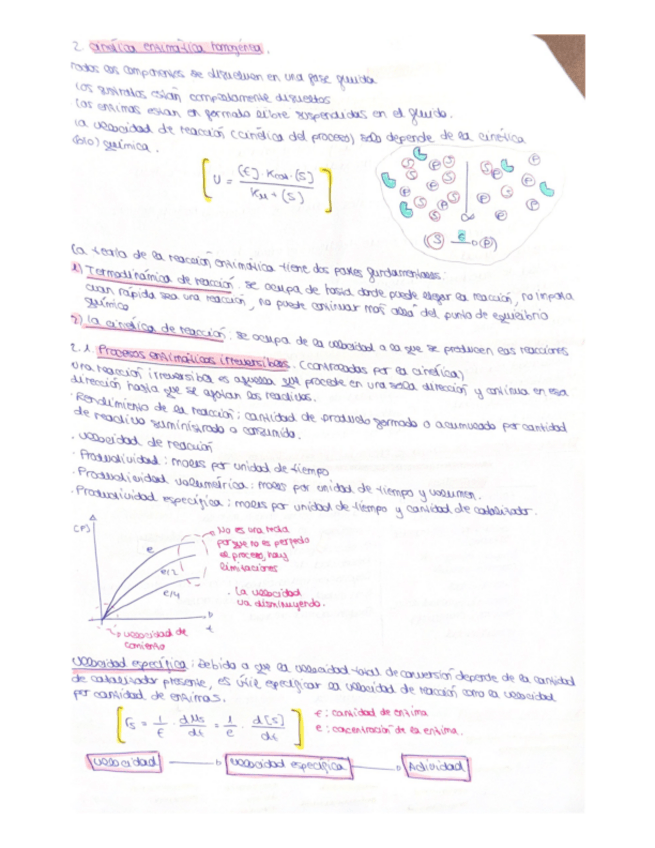 2. Cinética enzimática homogénea.
Todos los componentes se disuelven en una fase fluida
los sustratos están completamente disueltos
las enzimas estan en formato libre suspendidas en el fluido.
La velocidad de reacción (cinética del proceso) solo depende de la cinética
(bio) química.
[ U = [E] · Kcat · [S] / KM + [S] ]
(S) e → (P)
La teoría de la reacción enzimática tiene dos partes fundamentales:
1) Termodinámica de reacción: se ocupa de hasta donde puede llegar la reacción, no importa
cuan rápida sea una reacción, no puede continuar más allá del punto de equilibrio
químico
2) La cinética de reacción: se ocupa de la velocidad a la que se producen las reacciones
2.1. Procesos enzimáticos irreversibles. (controlados por la cinética)
Una reacción irreversible es aquella que procede en una sola dirección y continua en esa
dirección hasta que se agotan los reactivos.
· Rendimiento de la reacción: cantidad de producto formado o acumulado por cantidad
de reactivo suministrado o consumido.
· Velocidad de reacción
· Productividad: moles por unidad de tiempo
· Productividad volumétrica: moles por unidad de tiempo y volumen.
· Productividad específica: moles por unidad de tiempo y cantidad de catalizador.
[P]
e
e/2
e/4
t
No es una recta
porque no es perfecto
el proceso, hay
limitaciones
· La velocidad
va disminuyendo.
velocidad de
comienzo
Velocidad específica: Debido a que la velocidad total de conversión depende de la cantidad
de catalizador presente, es útil especificar la velocidad de reacción como la velocidad
por cantidad de enzimas.
[ rs = 1/E · dMs/dt = 1/e · d[S]/dt ]
E: cantidad de enzima
e: concentración de la enzima.
Velocidad → Velocidad específica → Actividad